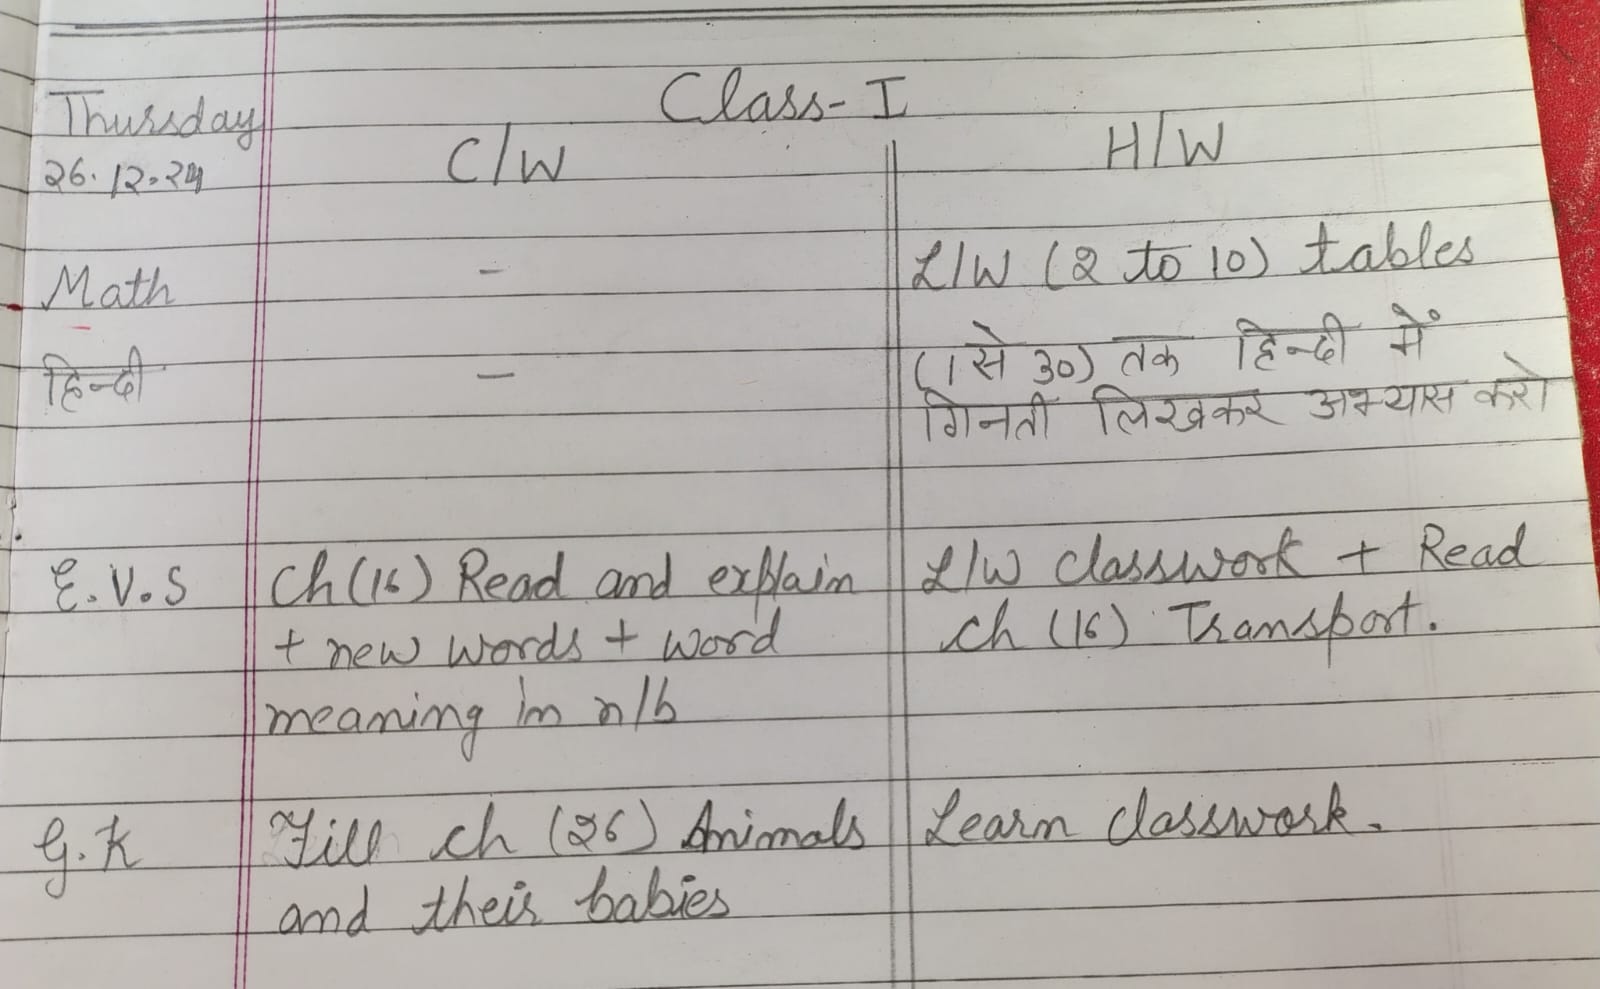 Class-I
Thursday
26.12.24
C/W
H/W
Math
-
L/W (2 to 10) tables
हिन्दी
-
(1 से 30) तक हिन्दी में
गिनती लिखकर अभ्यास करो
E.V.S
Ch (16) Read and explain
+ new words + word
meaning in n/b
L/W classwork + Read
ch (16) Transport.
G.K
Fill ch (26) Animals
and their babies
Learn classwork.